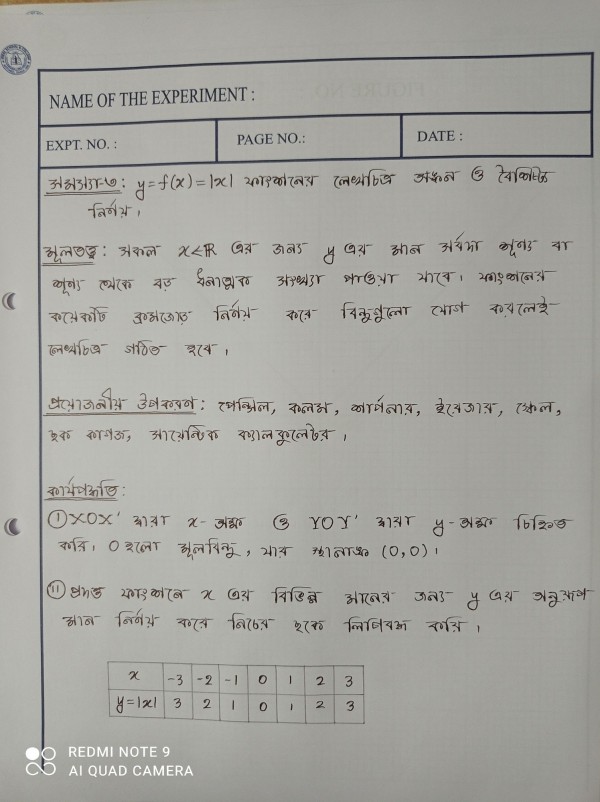 NAME OF THE EXPERIMENT :
EXPT. NO. :
PAGE NO.:
DATE :
সমস্যা-৩ : y=f(x) = |x| ফাংশনের লেখচিত্র অঙ্কন ও বৈশিষ্ট্য
নির্ণয়।
মূলতত্ত্ব : সকল x∈ℝ এর জন্য y এর মান সর্বদা শূণ্য বা
শূণ্য থেকে বড় ধনাত্মক সংখ্যা পাওয়া যাবে। ফাংশনের
কয়েকটি ক্রমজোড় নির্ণয় করে বিন্দুগুলো যোগ করলেই
লেখচিত্র গঠিত হবে।
প্রয়োজনীয় উপকরণ : পেন্সিল, কলম, শার্পনার, ইরেজার, স্কেল,
ছক কাগজ, সায়েন্টিফিক ক্যালকুলেটর।
কার্যপদ্ধতি:
(i) XOX′ দ্বারা x-অক্ষ ও YOY′ দ্বারা y-অক্ষ চিহ্নিত
করি। O হলো মূলবিন্দু, যার স্থানাঙ্ক (0,0)।
(ii) প্রদত্ত ফাংশনে x এর বিভিন্ন মানের জন্য y এর অনুরূপ
মান নির্ণয় করে নিচের ছকে লিপিবদ্ধ করি।
x -3 -2 -1 0 1 2 3
y=|x| 3 2 1 0 1 2 3
REDMI NOTE 9
AI QUAD CAMERA